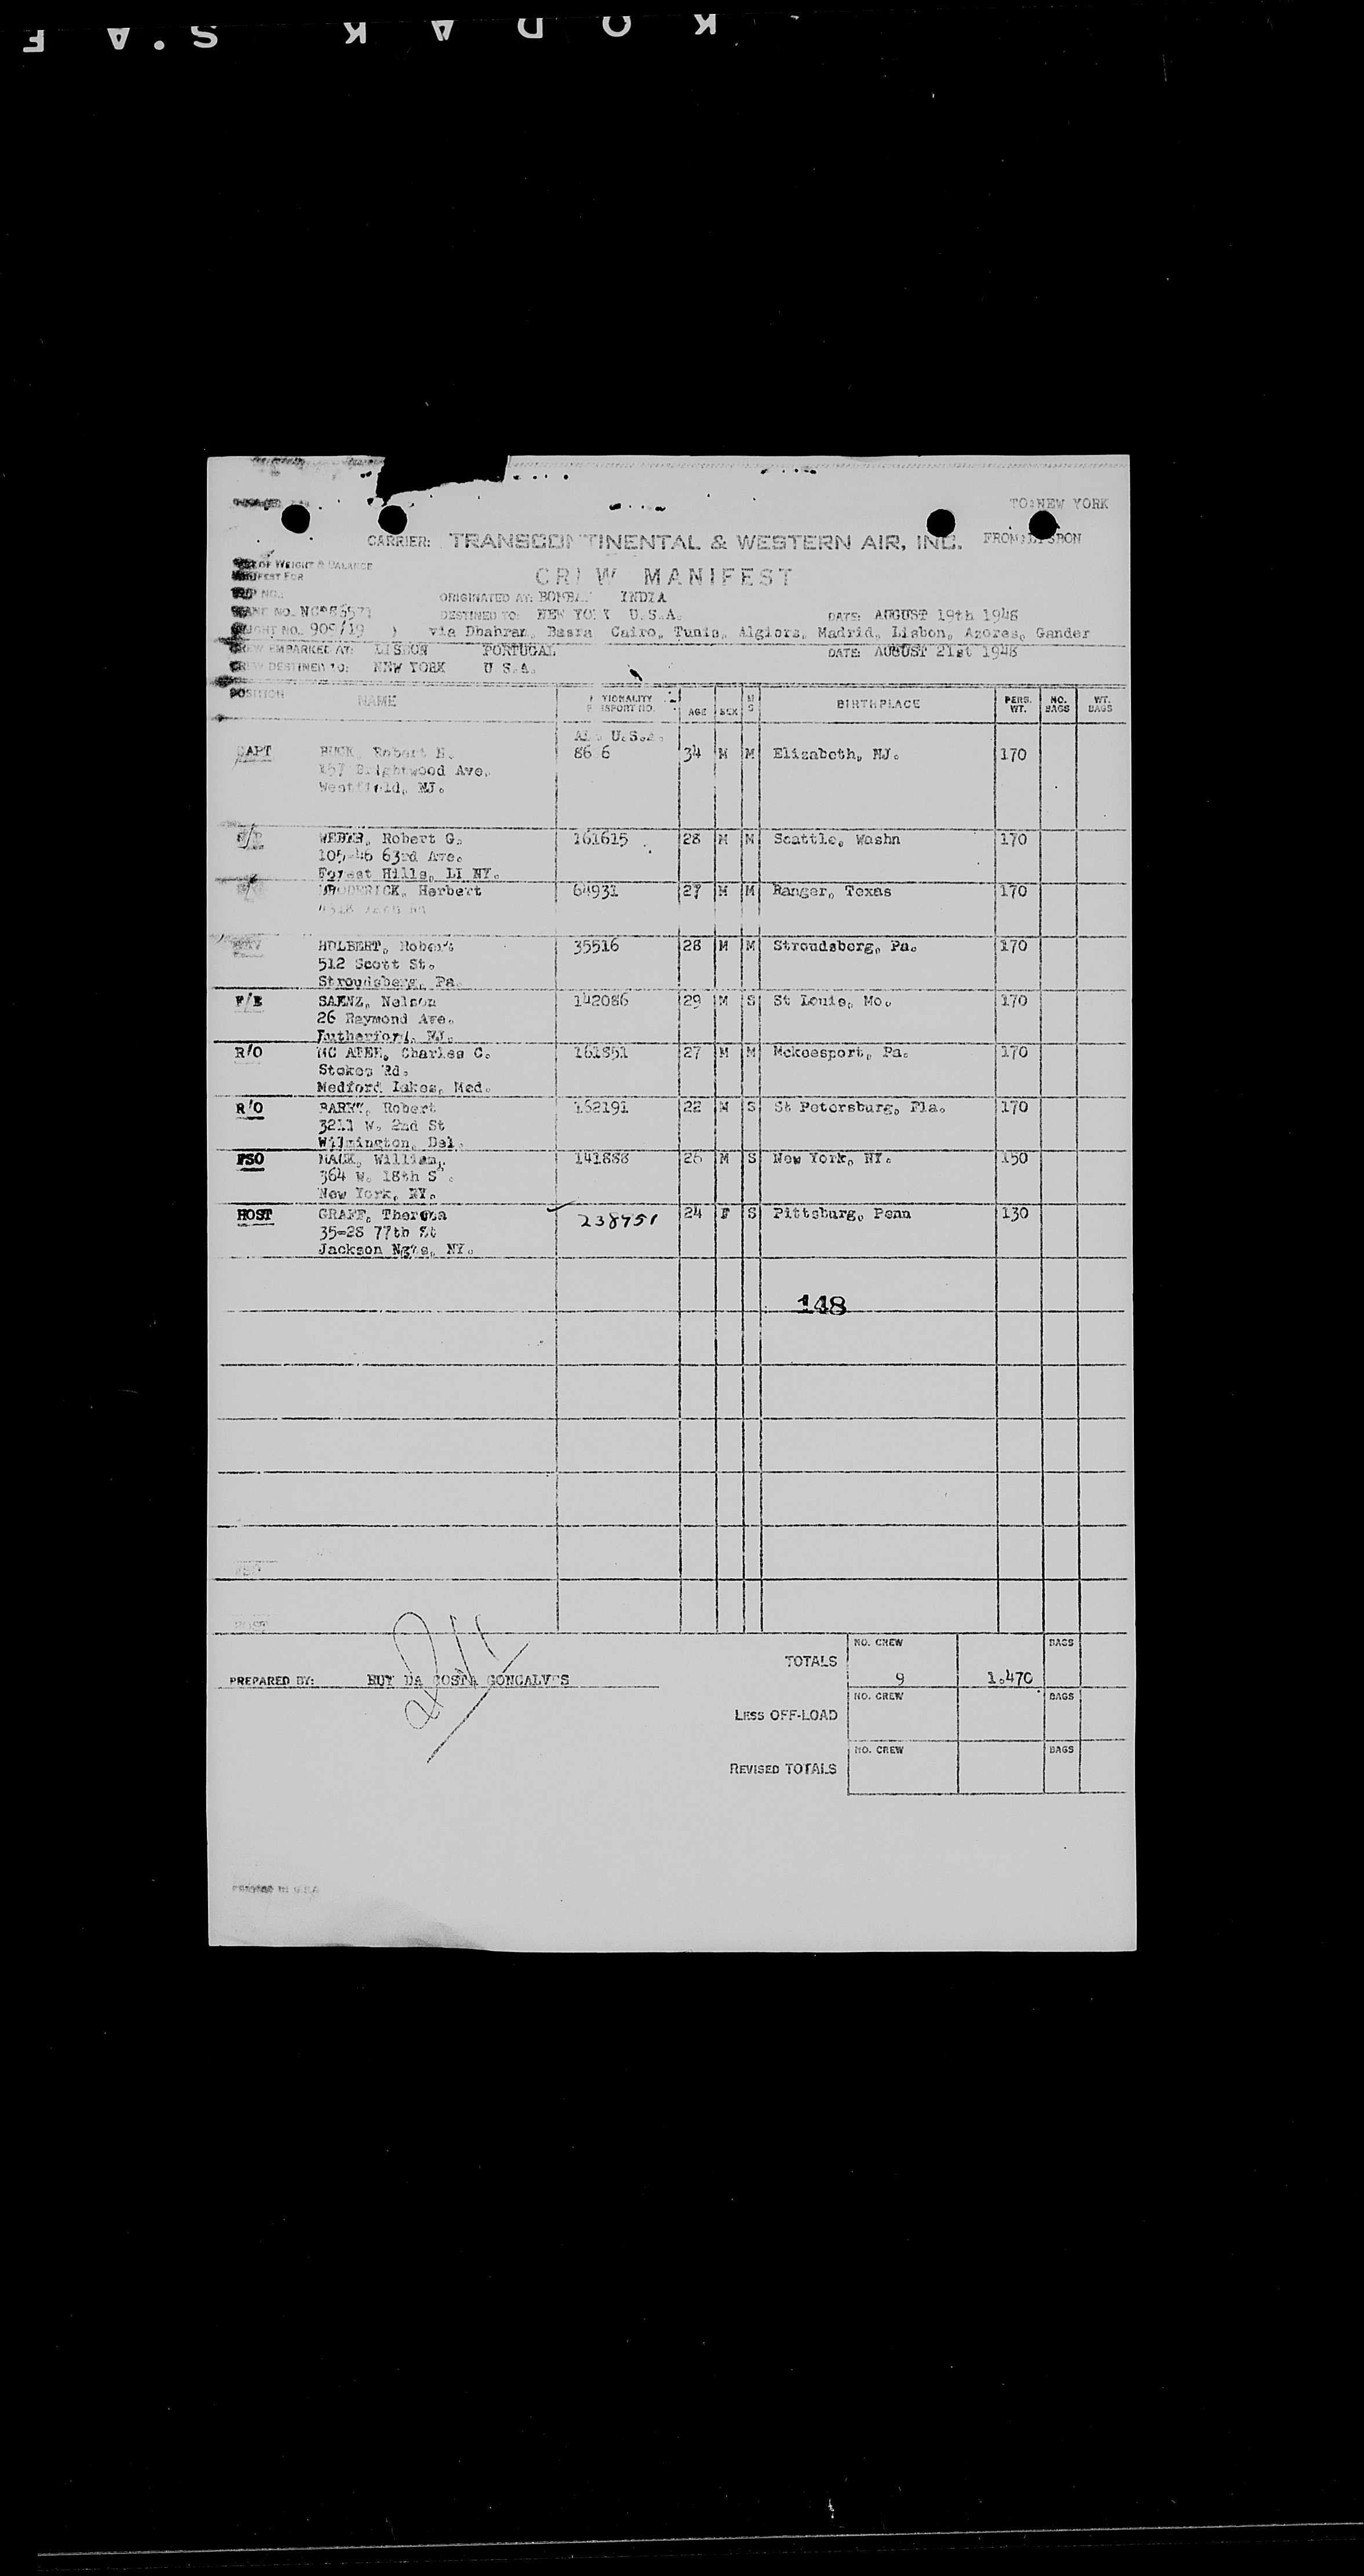 KODAK S.A F
TO: NEW YORK
CARRIER: TRANSCONTINENTAL & WESTERN AIR, INC. FROM: LISBON
OF WEIGHT & BALANCE
MANIFEST FOR
CREW MANIFEST
NO.
ORIGINATED AT: BOMBAY INDIA
NO.
DESTINED TO: NEW YORK U.S.A. DATE: AUGUST 19th 1948
FLIGHT NO. 909/19 ) via Dhahran, Basra Cairo, Tunis, Algiers, Madrid, Lisbon, Azores, Gander
CREW EMBARKED AT: LISBON PORTUGAL DATE: AUGUST 21st 1948
CREW DESTINED TO: NEW YORK U S.A.
POSITION NAME NATIONALITY PASSPORT NO. AGE SEX M S BIRTHPLACE PERS. WT. NO. BAGS WT. BAGS
U.S.A.
CAPT BUCK, Robert N. 86 6 34 M M Elizabeth, NJ. 170
157 Brightwood Ave.
Westfield, NJ.
WEBER, Robert G. 161615 28 M M Seattle, Washn 170
105-46 63rd Ave.
Forest Hills, LI NY.
BRODERICK, Herbert 64931 27 M M Ranger, Texas 170
HULBERT, Robert 35516 28 M M Stroudsberg, Pa. 170
512 Scott St.
Stroudsberg, Pa.
F/E SAENZ, Nelson 142086 29 M S St Louis, Mo. 170
26 Raymond Ave.
Rutherford, NJ.
R/O MC ATEE, Charles C. 161851 27 M M Mckeesport, Pa. 170
Stokes Rd.
Medford Lakes, Med.
R/O BARRY, Robert 152191 22 M S St Petersburg, Fla. 170
3211 W. 2nd St
Wilmington, Del.
FSO MACK, William, 141888 26 M S New York, NY. 150
364 W. 18th St.
New York, NY.
HOST GRAFF, Theresa 238751 24 F S Pittsburg, Penn 130
35-28 77th St
Jackson Ngts, NY.
148
NO. CREW BAGS
TOTALS
PREPARED BY: RUY DA COSTA GONCALVES 9 1.470
NO. CREW BAGS
LESS OFF-LOAD
NO. CREW BAGS
REVISED TOTALS
PRINTED IN U.S.A